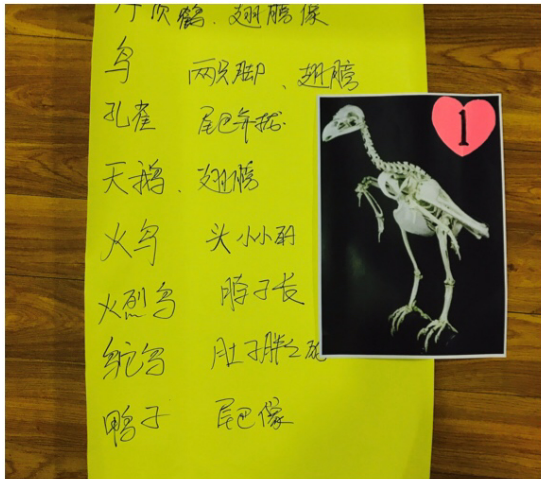 丹顶鹤、翅膀像
鸟 两只脚、翅膀
孔雀 尾巴
天鹅、翅膀
火鸟 头小小的
火烈鸟 脖子长
鸵鸟 肚子胖
鸭子 尾巴像
1